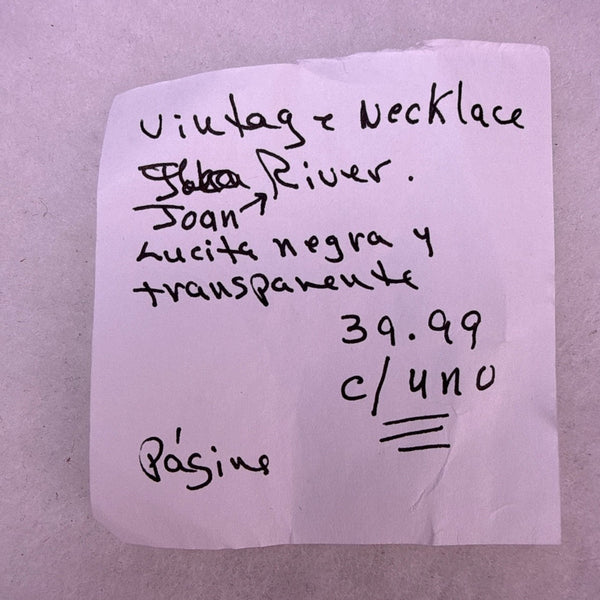 Vintage Necklace
River.
Joan
Lucita negra y
transparente
39.99
c/uno
Página